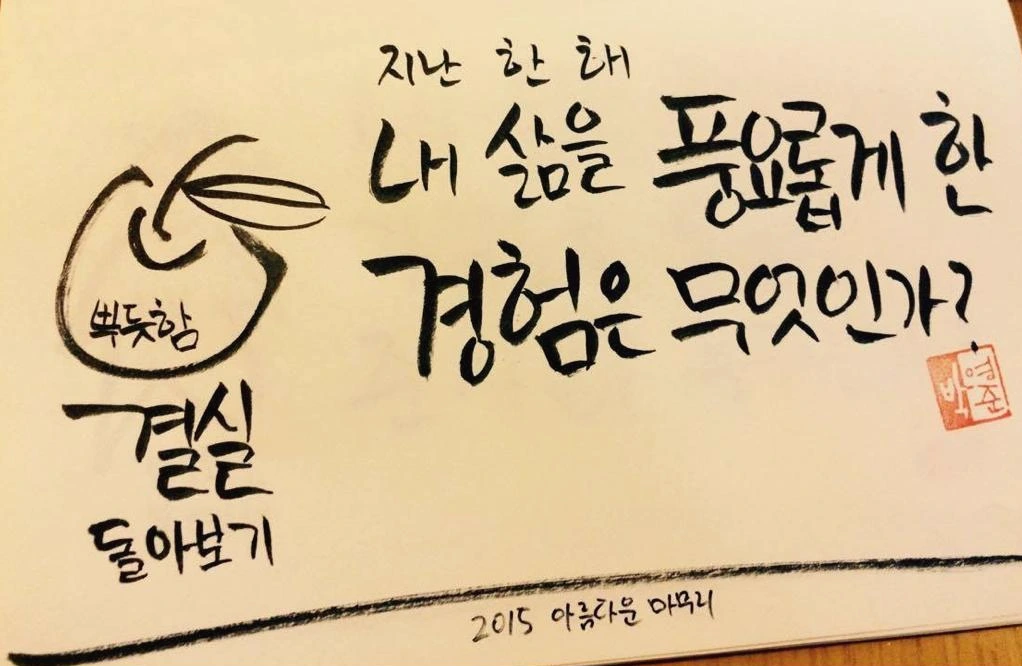 지난 한 해
내 삶을 풍요롭게 한
경험은 무엇인가?
뿌듯함
결실
돌아보기
2015 아름다운 마무리
박영준